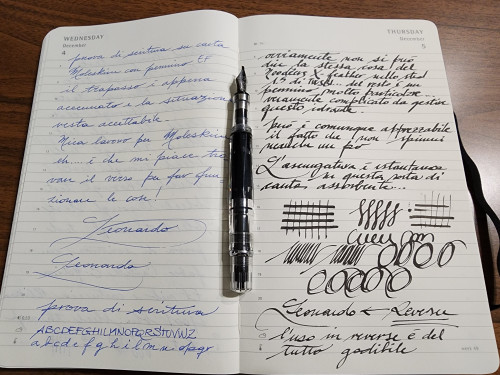 WEDNESDAY
December
4
prova di scrittura su carta
Moleskin con pennino EF
il trapasso è appena
accennato e la situazione
resta accettabile
Non lavoro per Moleskine
eh... è che mi piace tro
vare il verso per far fun
zionare le cose!
Leonardo
Leonardo
prova di scrittura
ABCDEFGHILMNOPQRSTUVWZ
a b c d e f g h i l m n o p q r
THURSDAY
December
5
ovviamente non si può
dire la stessa cosa del
X feather nello
1.5 di del resto è un
pennino molto
veramente complicato da gestire
questo
può è comunque apprezzabile
il fatto che non spiumi
neanche un po'
L'asciugatura è istantanea
su questa sorta di
carta assorbente...
Leonardo & Reverse
l'uso in reverse è del
tutto godibile